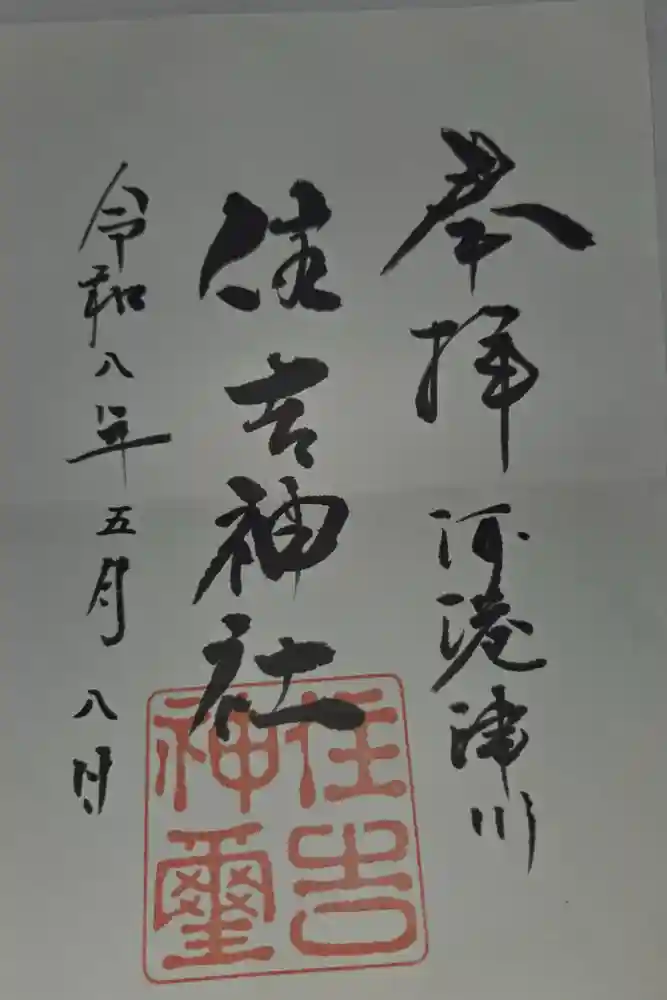 奉拝
河港津川
住吉神社
令和八年五月八日
住吉
神璽